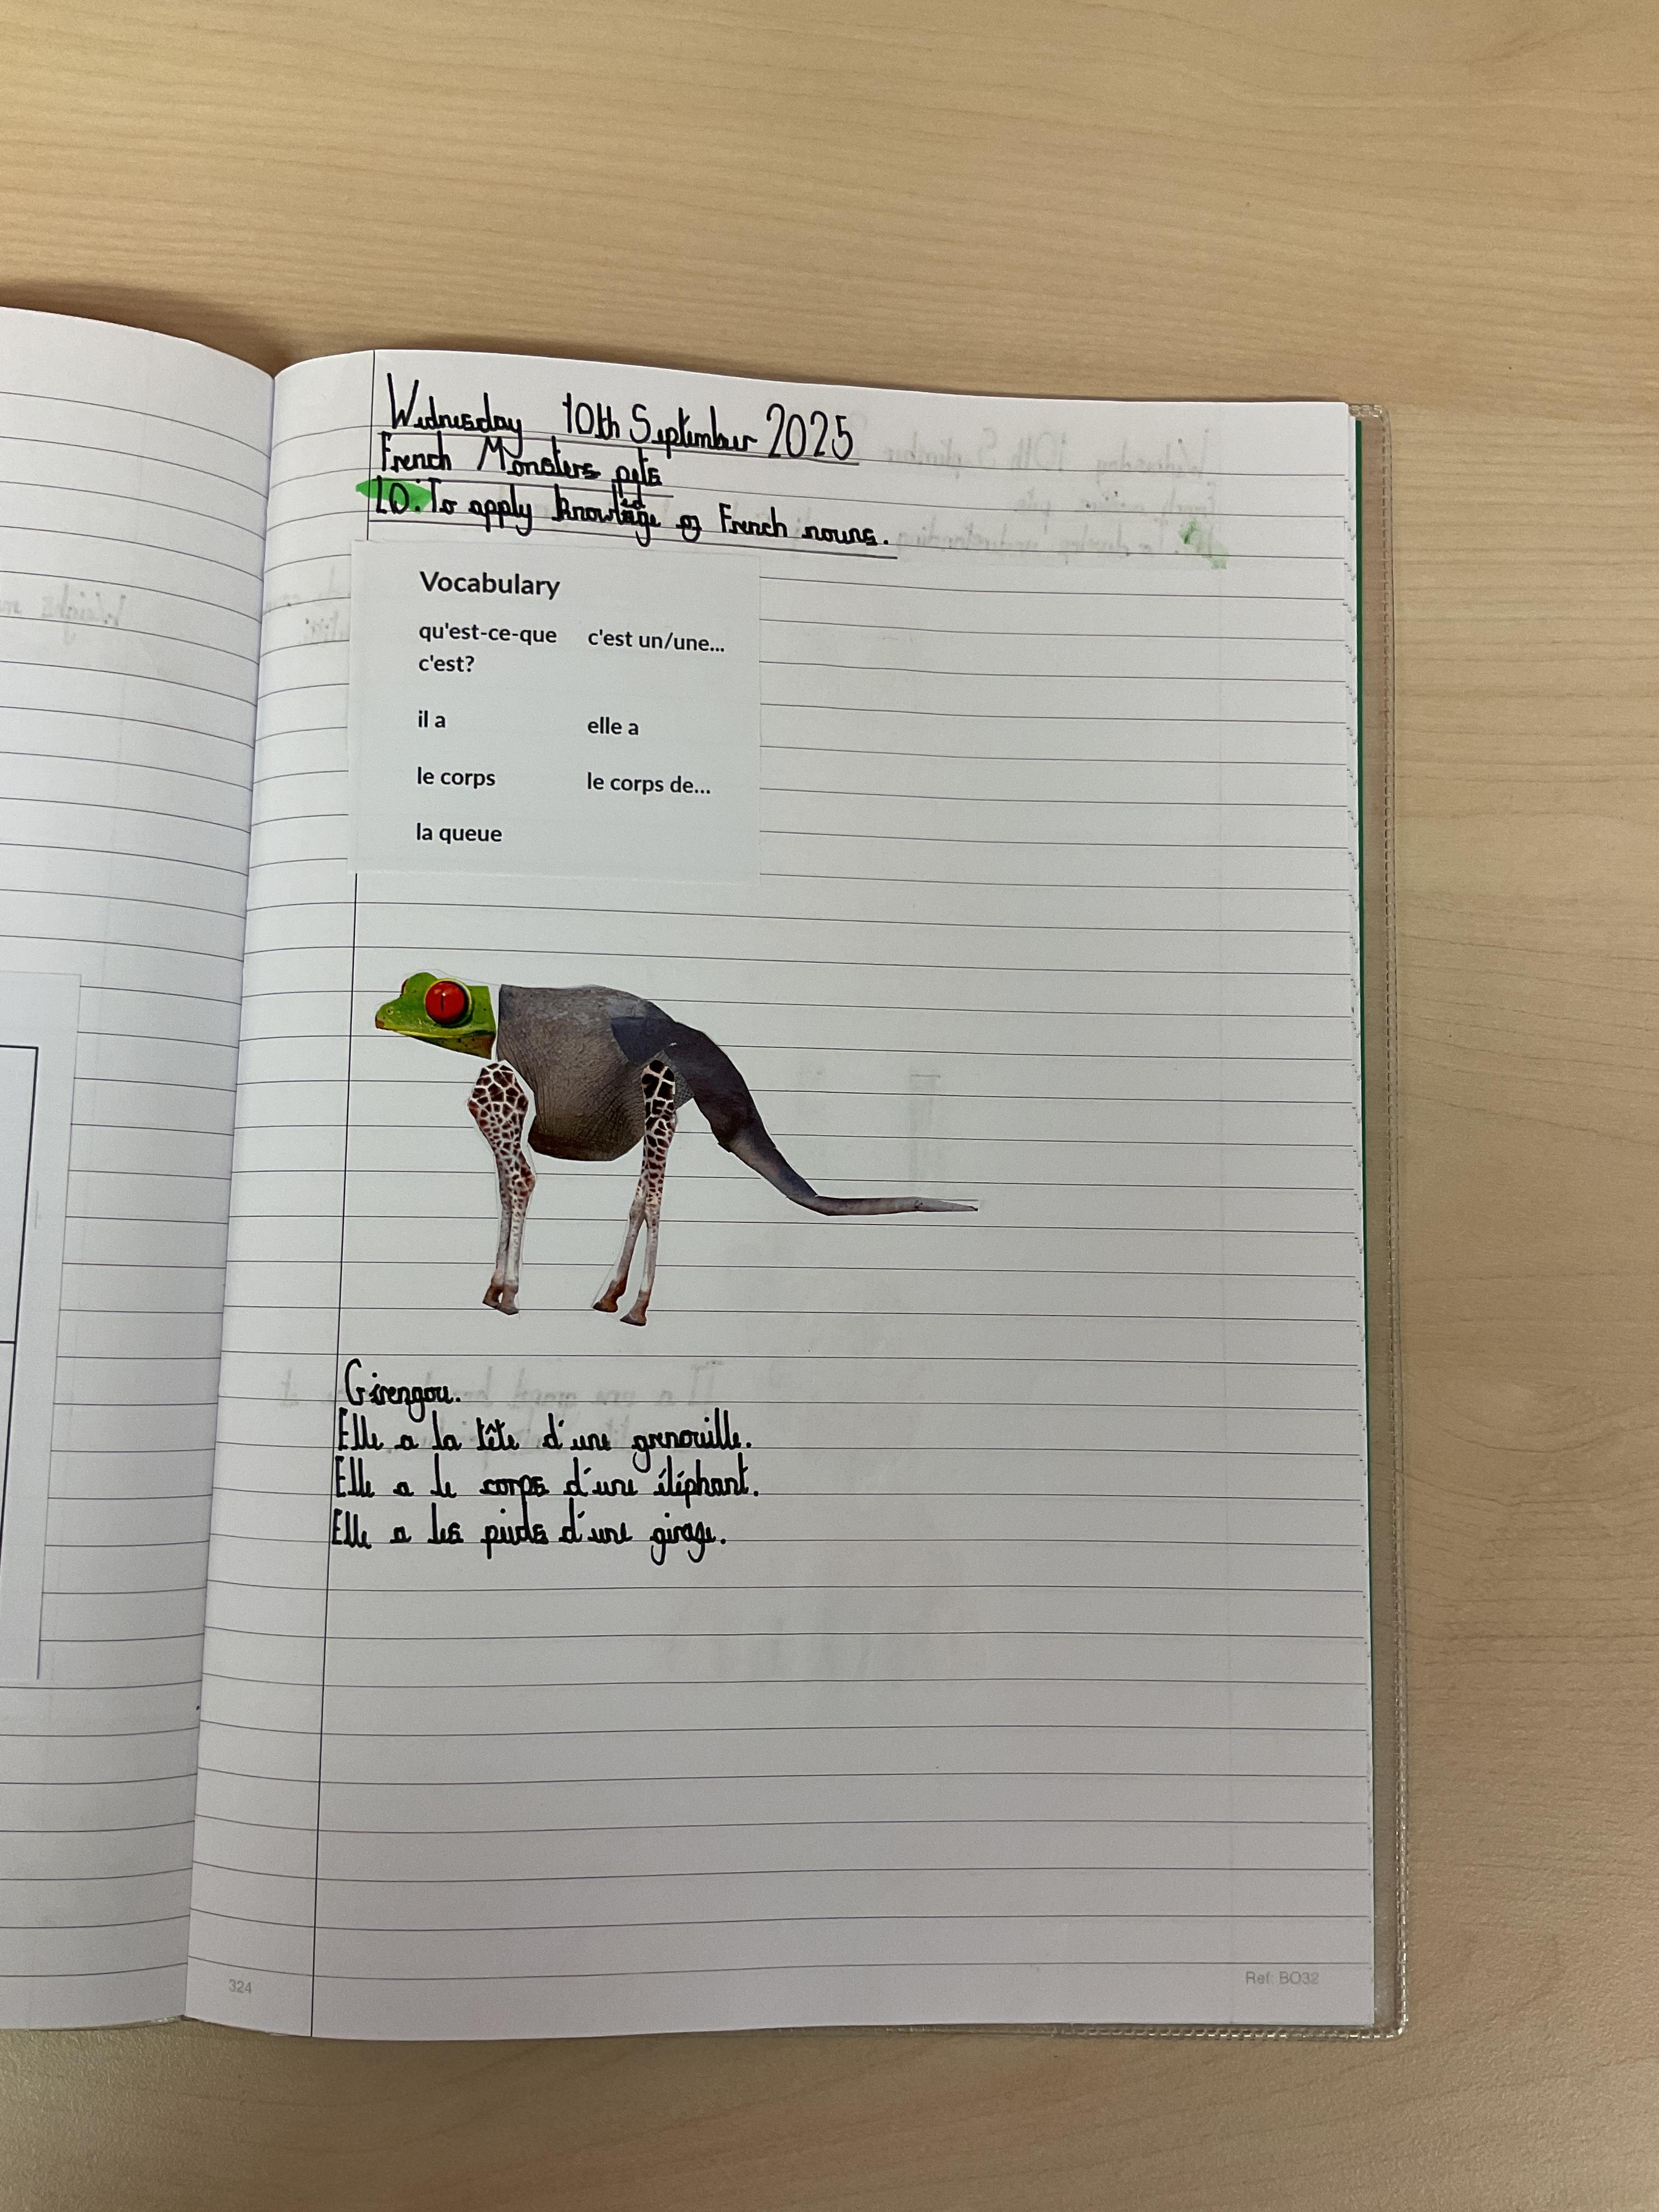 Wednesday 10th September 2025
French Monsters pets
LO: To apply knowledge of French nouns.
Vocabulary
qu'est-ce-que c'est un/une...
c'est?
il a elle a
le corps le corps de...
la queue
Girengou.
Elle a la tête d'une grenouille.
Elle a le corps d'une éléphant.
Elle a les pieds d'une girafe.
324
Ref: BO32